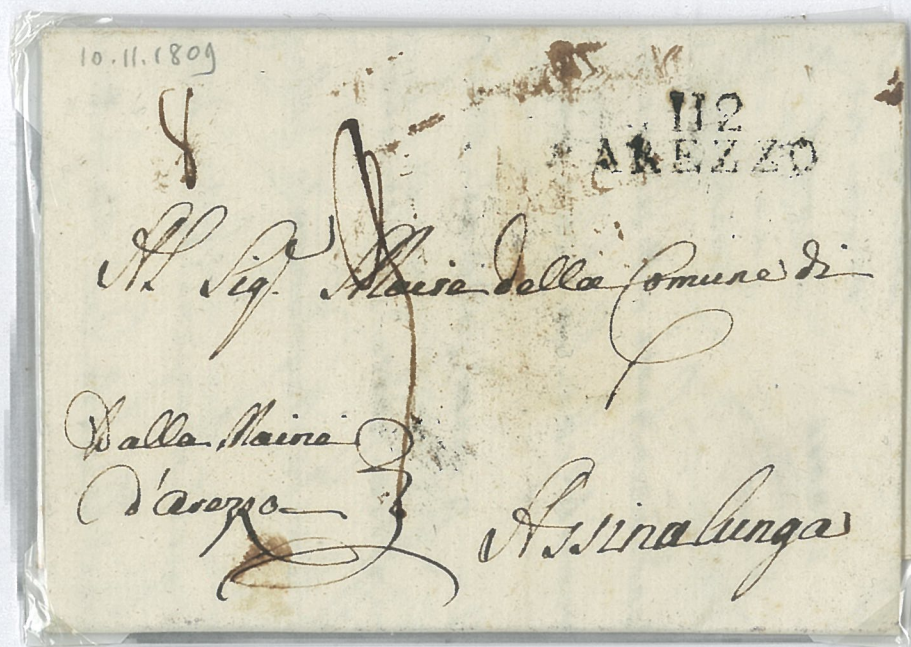 10.11.1809
112
AREZZO
Al Sig.r Maire della Comune di
Dalla Mairie
d'Arezzo
Assinalunga